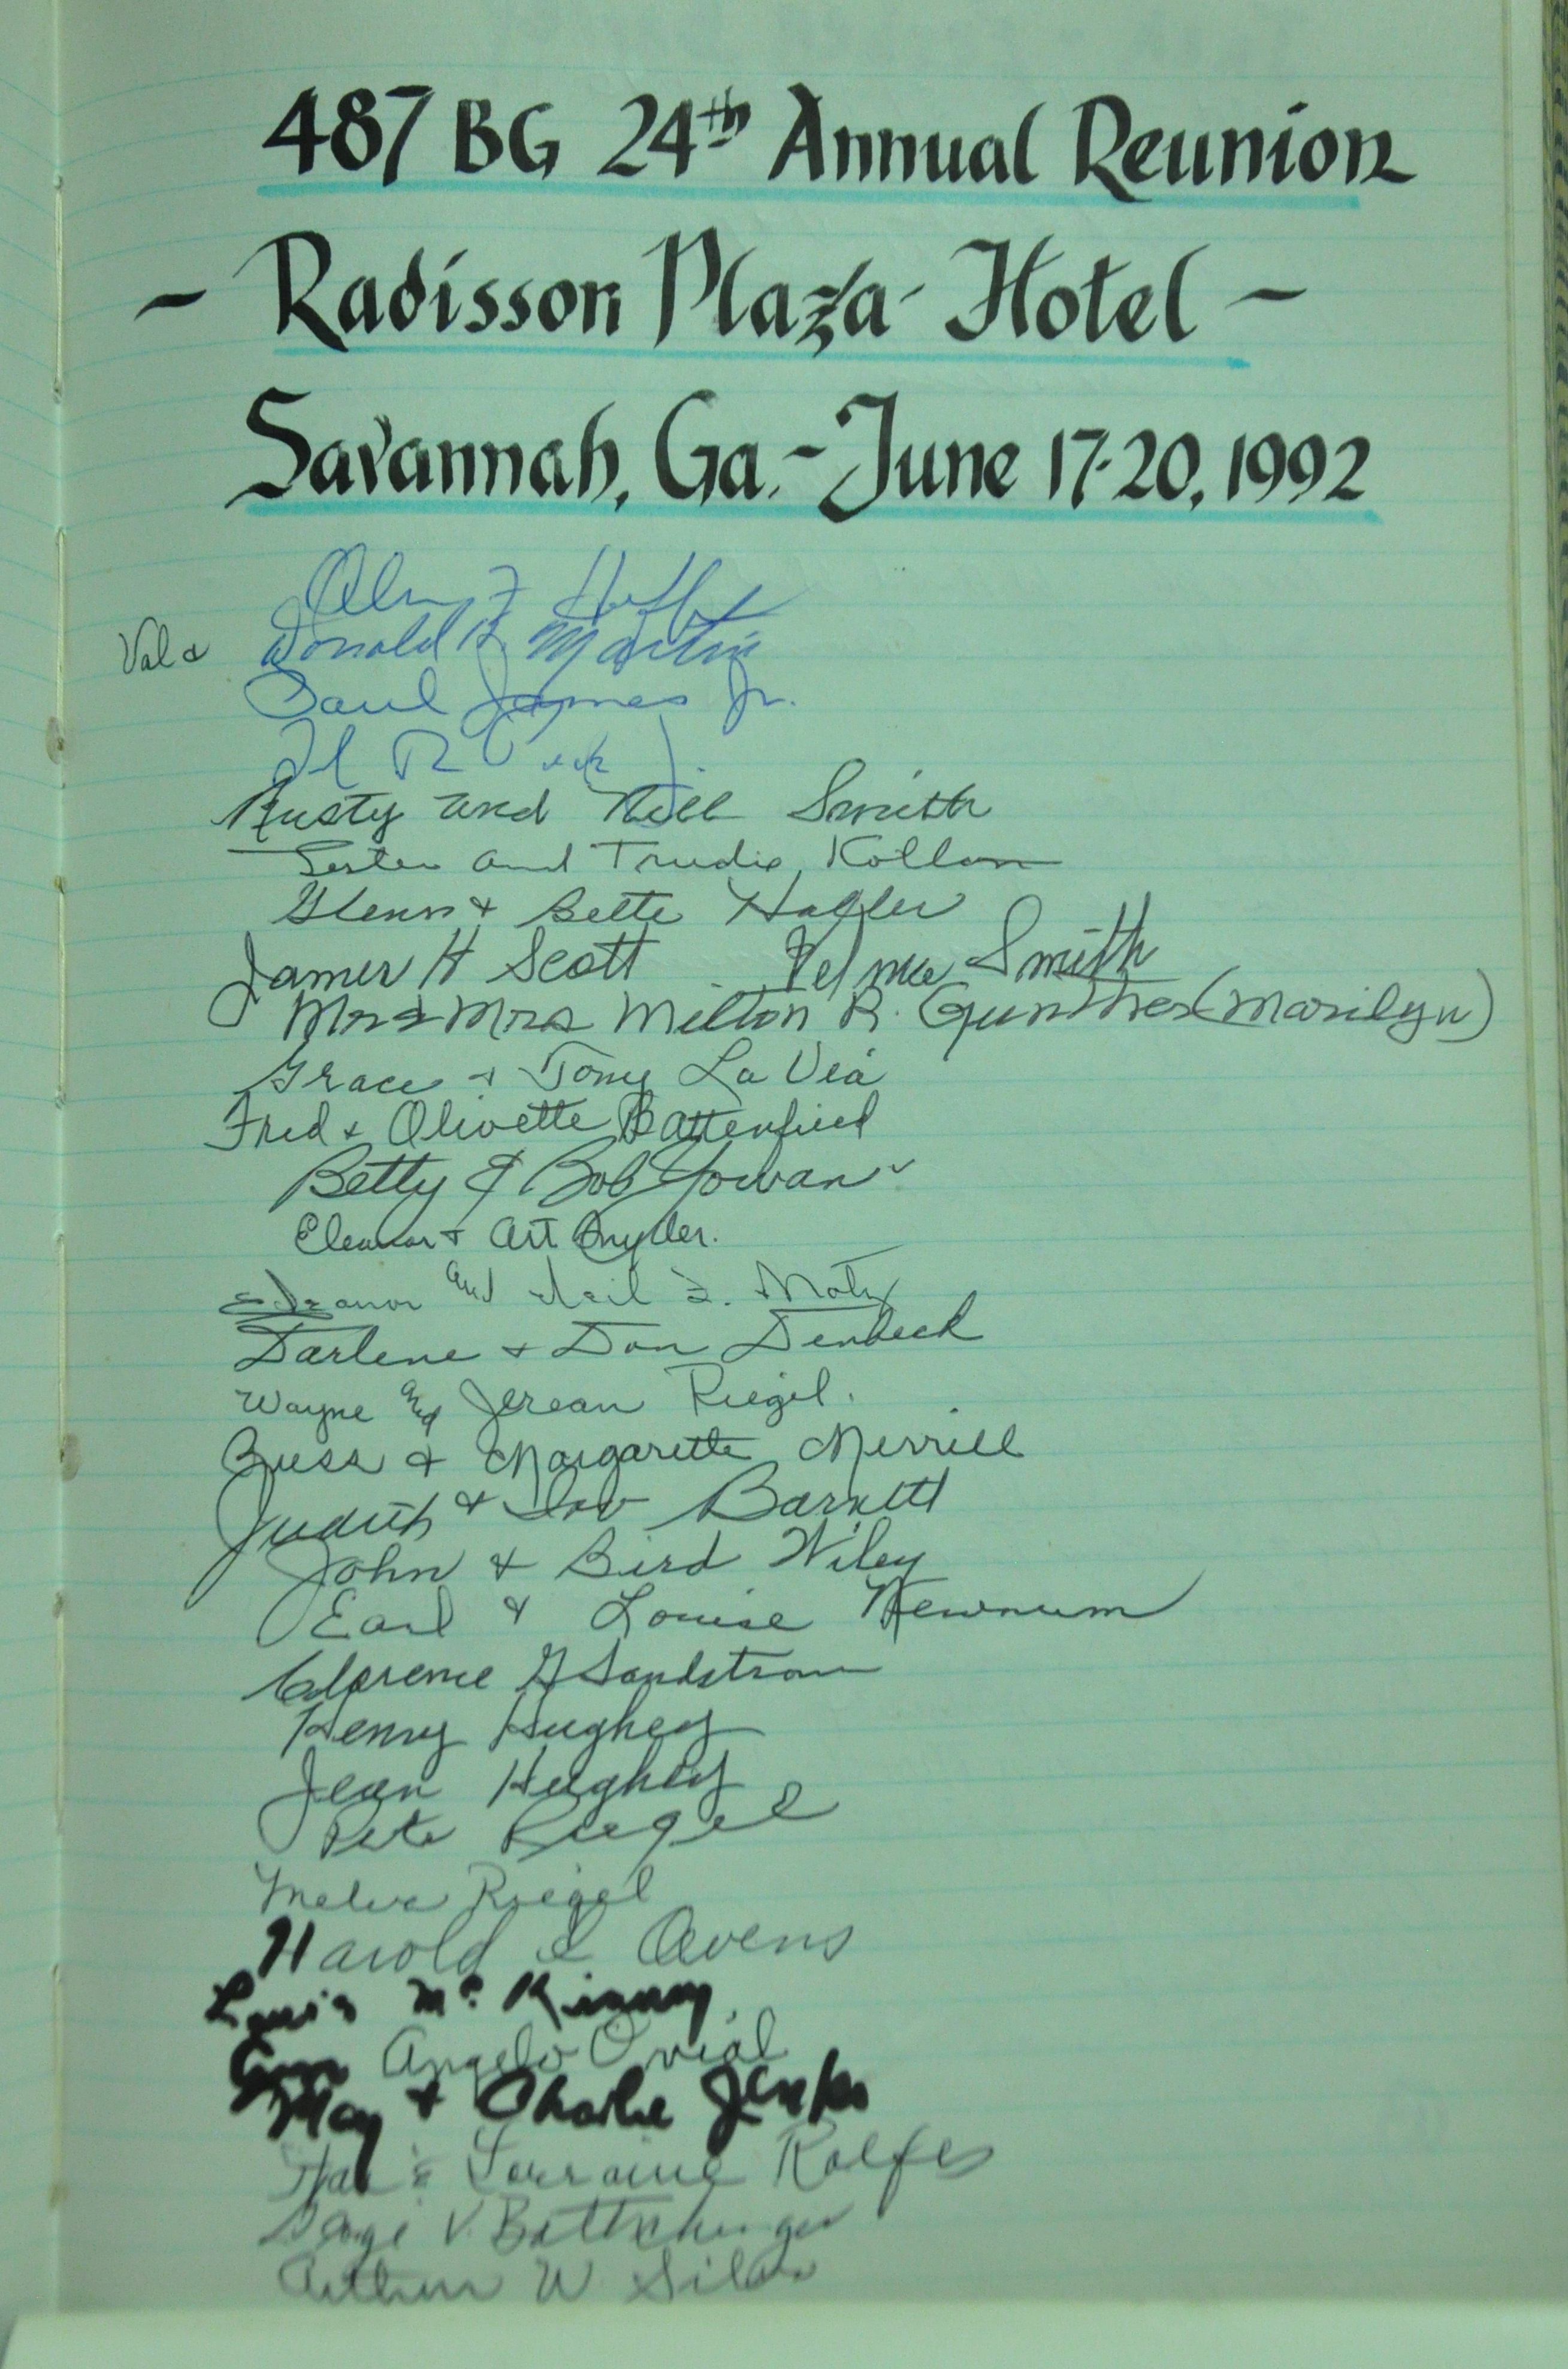 487 BG 24th Annual Reunion
- Radisson Plaza Hotel -
Savannah, Ga. - June 17-20, 1992
Val & Donald R. Martin
Paul James Jr.
Rusty and Nell Smith
Lester and Trudie Kollom
Glenn & Bette Hagler
James H Scott Velma Smith
Mr & Mrs Milton R. Gunther (Marilyn)
Grace & Tony La Via
Fred & Olivette Battenfield
Betty & Bob Gowan
Eleanor & Art Snyder.
Eleanor and Neil F. Matz
Darlene & Don Denbeck
Wayne and Jerean Riegel.
Buss & Margarette Merrill
Judith & Barnett
John & Bird Wiley
Earl & Louise Newnum
Clarence G Sandstrom
Henry Hughey
Jean Hughey
Pete Riegel
Melva Riegel
Harold L Owens
Lewis McKinney
Angelo
May & Charlie Jenks
& Lorraine Rolfes
George V. Bettschinger
Arthur W. Silva